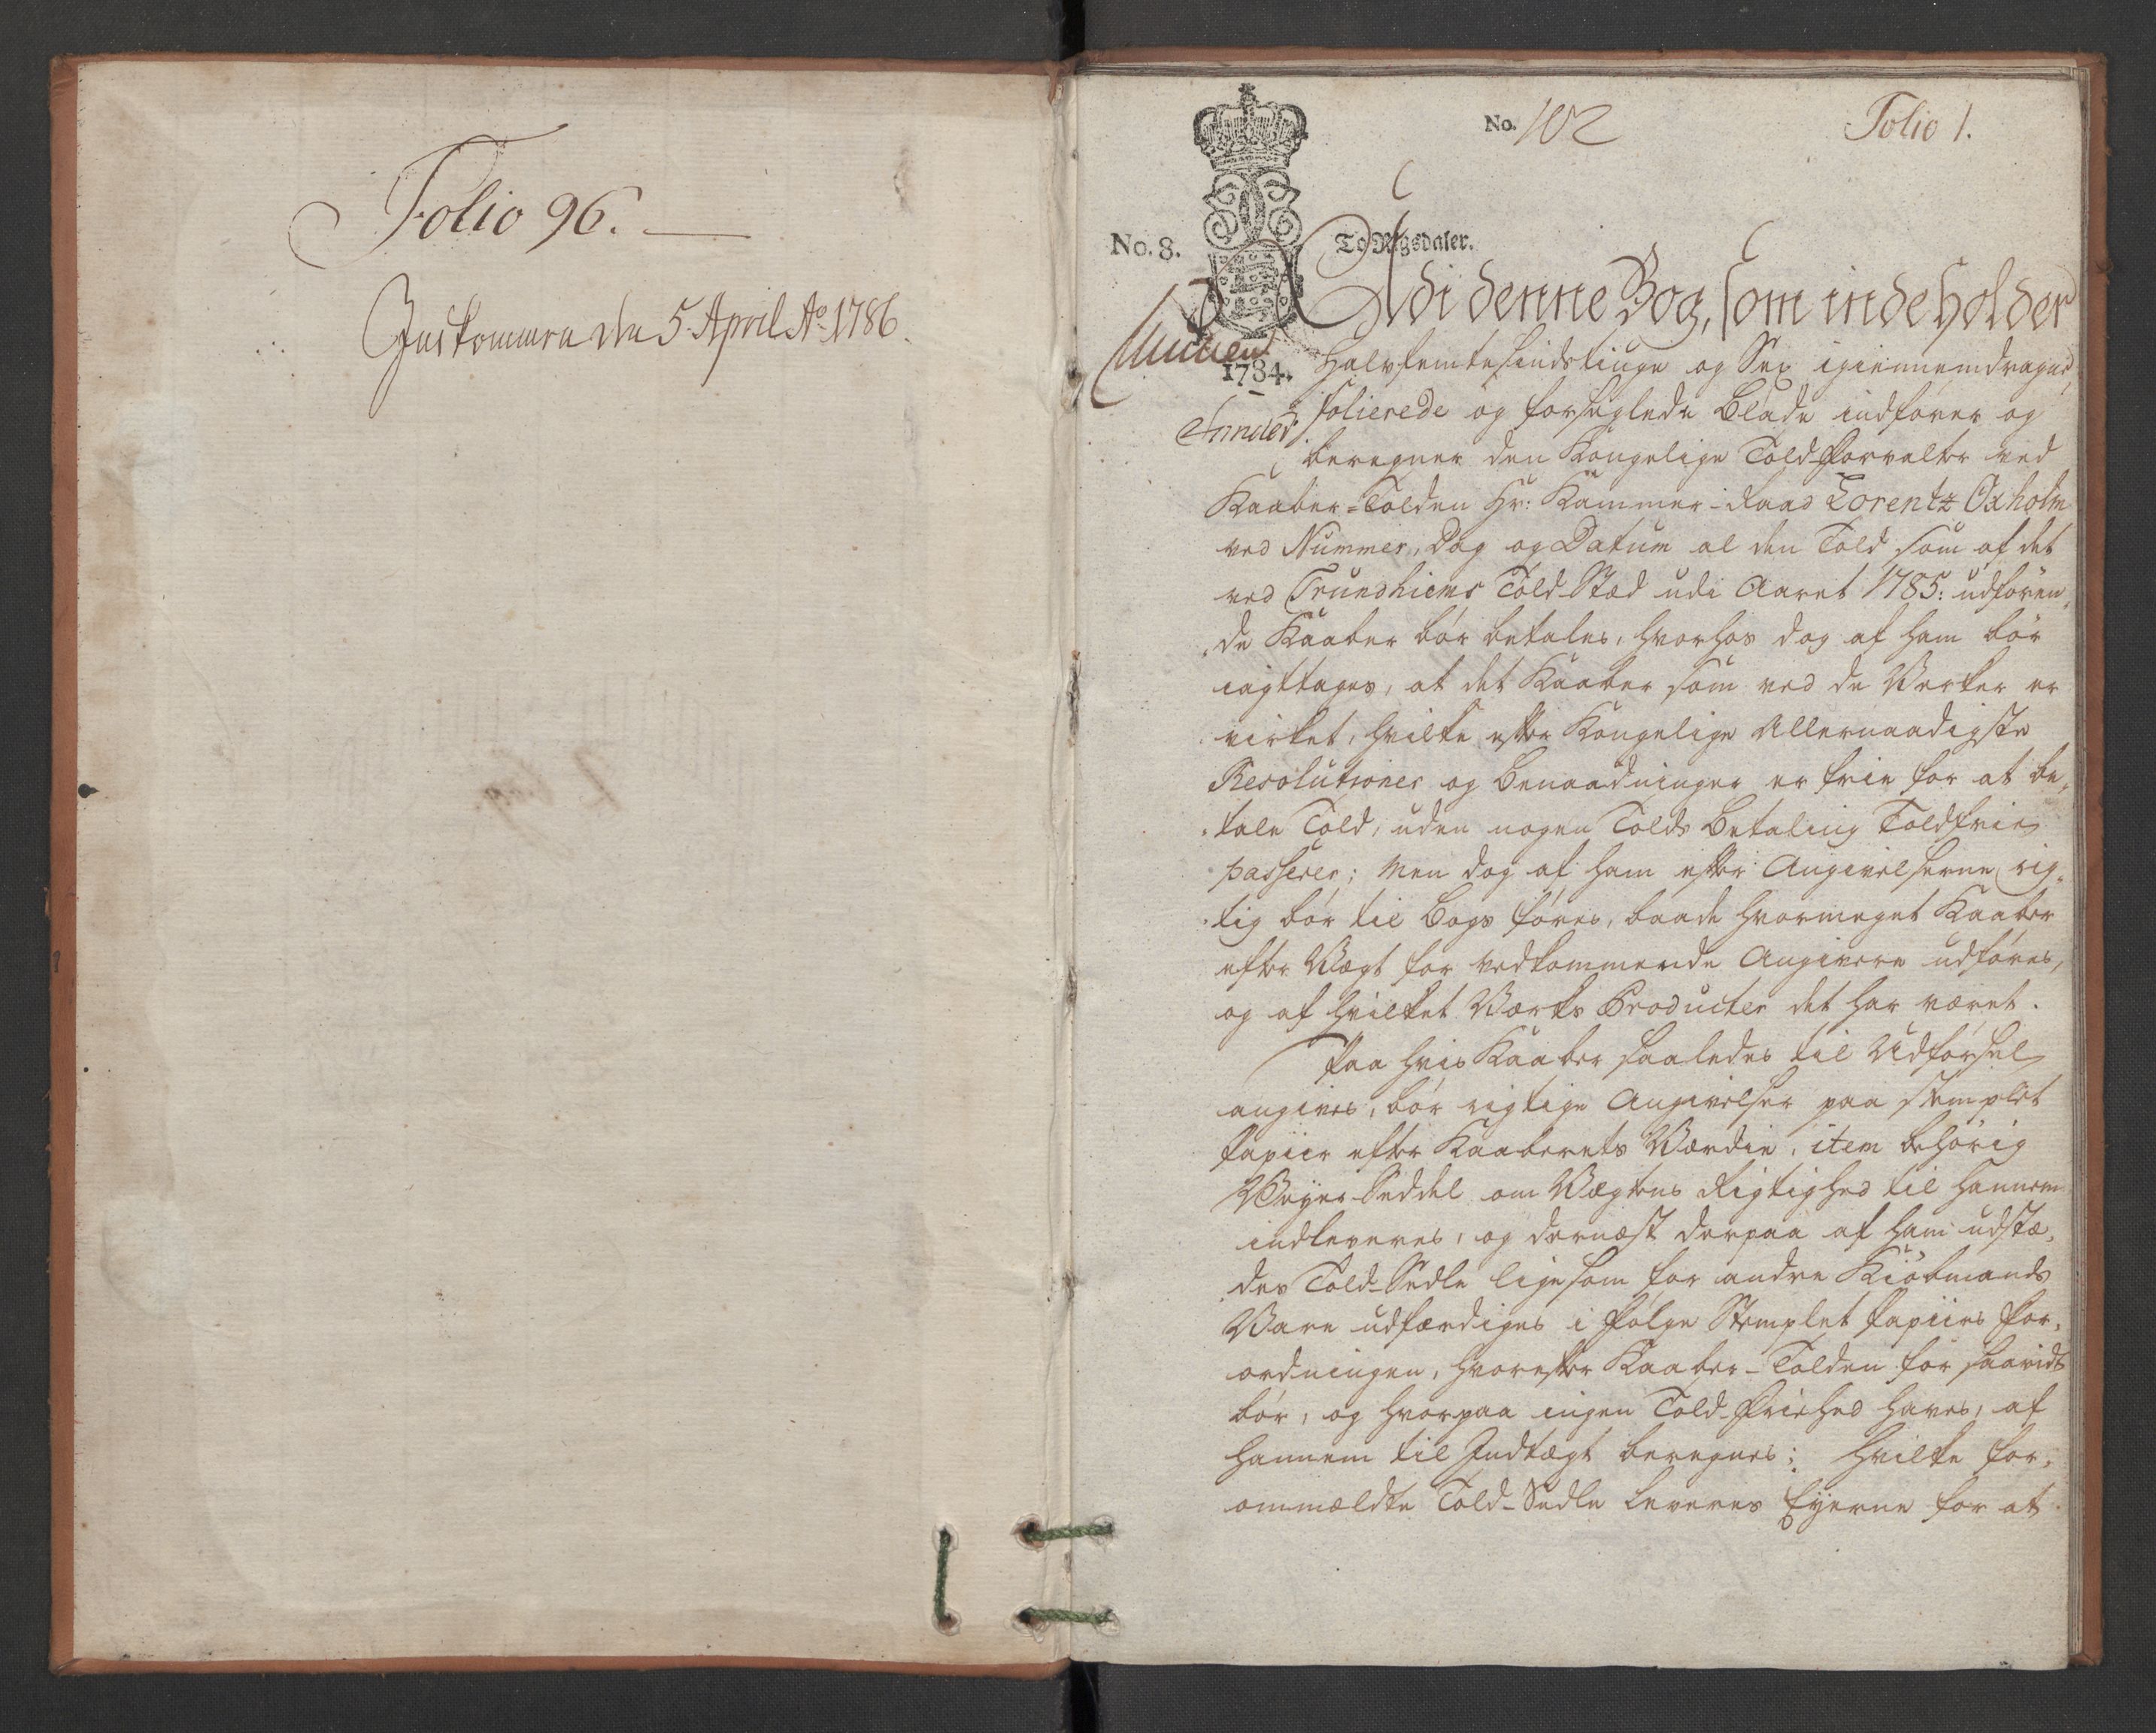 Folio 96.
Indkommen den 5 April Ao. 1786.
No. 102
Folio 1.
No. 8.
To Rigsdaler.
1784.
Udi denne Bog, som indeholder
Halvfemtesindstiuge og Sex igiennemdragne,
folierede og forseglede Blade indfører og
beregner den Kongelige Told-Forvalter ved
Kaaber-Tolden Hr: Kammer-Raad Lorentz Oxholm
ved Nummer, Dag og Datum al den Told som af det
ved Trundhiems Told-Stæd udi Aaret 1785: udføren-
-de Kaaber bør betales, hvorhos dog af ham bør
iagttages, at det Kaaber som ved de Verker er
virket, hvilke efter Kongelige Allernaadigste
Resolutioner og Benaadninger er frie for at be-
-tale Told, uden nogen Tolds Betaling Toldfrie
passerer; Men dog af ham efter Angivelserne rig-
-tig bør til Bogs føres, baade hvormeget Kaaber
efter Vægt for vedkommende Angivere udføres,
og af hvilket Værks Producter det har været.
Paa hvis Kaaber saaledes til Udførsel
angives, bør rigtige Angivelser paa stemplet
Papiir efter Kaaberets Værdie, item behørig
Veyer-Seddel om Vægtens Rigtighed til hannem
indleveres, og dernæst derpaa af ham udstæ-
des Told-Sedle ligesom for andre Kiøbmands
Vare udfærdiges i Følge Stemplet Papiirs For-
ordningen, hvorefter Kaaber-Tolden for saavidt
bør, og hvorpaa ingen Told-Friehed haves, af
hannem til Indtægt beregnes; hvilke for-
ommældte Told-Sedle leveres Eyerne for at